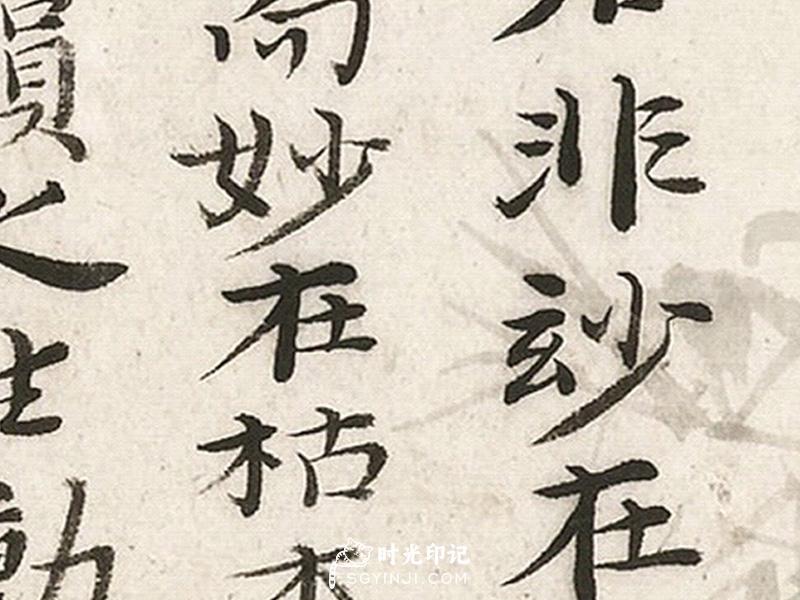 非玅在
而妙在枯
之生動
时光印记
SGYINJI.COM